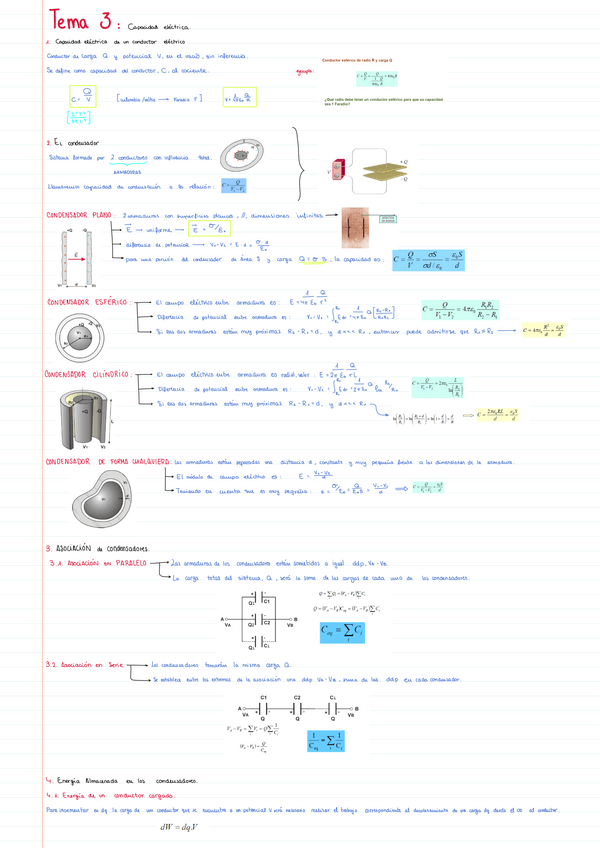 Tema 3: Capacidad eléctrica.
1. Capacidad eléctrica de un conductor eléctrico
Conductor de carga Q y potencial V, en el vacío, sin influencia.
Se define como capacidad del conductor, C, al cociente:
C = Q/V
[culombio/voltio → Faradio F]
ejemplo:
Conductor esférico de radio R y carga Q
¿Qué radio debe tener un conductor esférico para que su capacidad sea 1 Faradio?
2. El condensador
Sistema formado por 2 conductores con influencia total.
ARMADURAS
Llamaremos capacidad de condensación a la relación:
C = Q/(V₁-V₂)
V
+Q
-Q
CONDENSADOR PLANO: 2 armaduras son superficies planas, //, dimensiones infinitas
E → uniforme → E = σ/ε₀
diferencia de potencial → V₁-V₂ = E·d = σ·d/ε₀
para una porción del condensador de área S y carga Q = σ·S, la capacidad es:
C = Q/V = σS/(σd/ε₀) = ε₀S/d
E
V₁ d V₂
CONDENSADOR ESFÉRICO:
El campo eléctrico entre armaduras es:
Diferencia de potencial entre armaduras es:
C = Q/(V₁-V₂) = 4πε₀ R₁R₂/(R₂-R₁)
Si las dos armaduras están muy próximas R₂-R₁=d, y d<<< R₁, entonces puede admitirse que R₂≈R₁
C = 4πε₀ R²/d = ε₀S/d
CONDENSADOR CILÍNDRICO:
El campo eléctrico entre armaduras es radial, valor:
Diferencia de potencial entre armaduras es:
C = Q/(V₁-V₂) = 2πε₀ L/ln(R₂/R₁)
Si las dos armaduras están muy próximas R₂-R₁=d, y d<<< R₁
C = 2πε₀RL/d = ε₀S/d
+Q
-Q
L
V₁ V₂
CONDENSADOR DE FORMA CUALQUIERA: las armaduras están separadas una distancia d, constante y muy pequeña frente a las dimensiones de la armadura.
El módulo de campo eléctrico es: E = (V₁-V₂)/d
Teniendo en cuenta que es muy pequeña: E = σ/ε₀ = Q/ε₀S = (V₁-V₂)/d
C = Q/(V₁-V₂) = ε₀S/d
3. ASOCIACIÓN de condensadores.
3.1. ASOCIACIÓN EN PARALELO
Las armaduras de los condensadores están sometidas a igual ddp, VA-VB.
La carga total del sistema, Q, será la suma de las cargas de cada uno de los condensadores.
A
VA
Q₁ C1
Q2 C2
Qᵢ Cᵢ
B
VB
Q = ∑Qᵢ = (V_A - V_B)∑Cᵢ
Q = (V_A - V_B)C_eq = (V_A - V_B)∑Cᵢ
C_eq = ∑Cᵢ
3.2. Asociación en Serie
Los condensadores tomarán la misma carga Q.
Se establece entre los extremos de la asociación una ddp VA-VB, suma de las ddp en cada condensador.
C1 C2 Cᵢ
A B
VA Q Q Q VB
V_A - V_B = ∑Vᵢ = Q∑1/Cᵢ
(V_A - V_B) = Q/C_eq
1/C_eq = ∑1/Cᵢ
4. Energía Almacenada en los condensadores.
4.1. Energía de un conductor cargado.
Para incrementar en dq la carga de un conductor que se encuentra a un potencial V será necesario realizar el trabajo correspondiente al desplazamiento de una carga dq desde el ∞ al conductor.
dW = dq.V